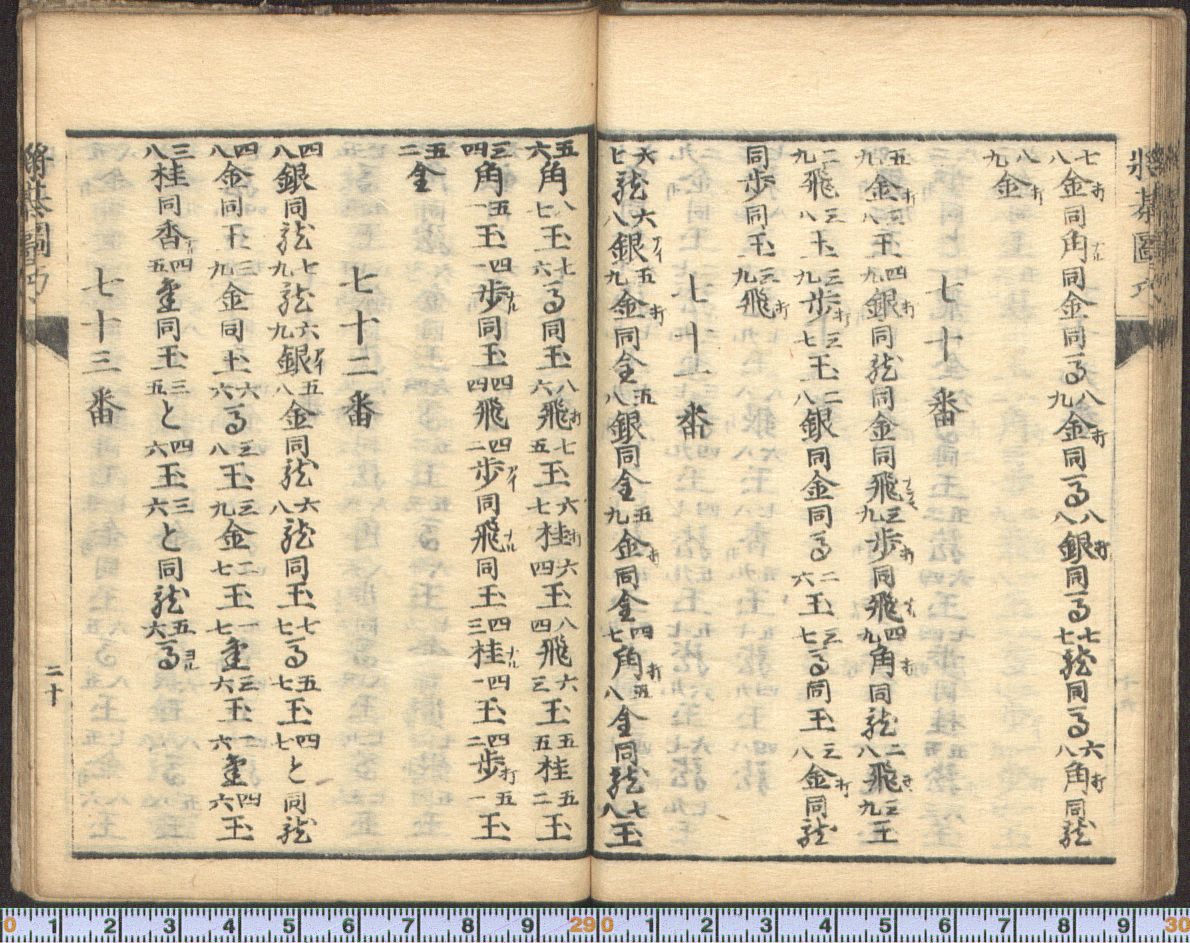 將棊圖
七八金打同角ナル同金同馬八九金打同馬八八銀打同馬七七龍同馬六八角打同龍
八九金打
七十番
五九金打三八玉四九銀打同龍同金同飛ナラズ三九歩打同飛ナル四九角打同龍二八飛打三九玉
二九飛三八玉三九歩打三七玉二八銀同金同馬二六玉三七馬同玉三八金打同龍
同歩同玉三九飛打
七十一番
六七龍六八銀アイ五九金打同金五八銀同金五九金打同金四七角打五八金同龍七八玉
五六角八七玉七六馬同玉八六飛打七五玉六七桂打六四玉八四飛六三玉五五桂五二玉
三四角五一玉四一歩ナル同玉四四飛四二歩アイ同飛ナル同玉四三桂ナル四一玉四二歩打五一玉
五二全
七十二番
四八銀同龍七九龍六九銀アイ五八金同龍六八龍同玉七七馬五七玉四七と同龍
四八金同玉三九金同玉六六馬三八玉三九金二七玉一七圭三六玉一六圭四六玉
三八桂同香四五圭同玉三五と四六玉三六と同龍五六馬ヨル
七十三番
將棊圖巧
二十